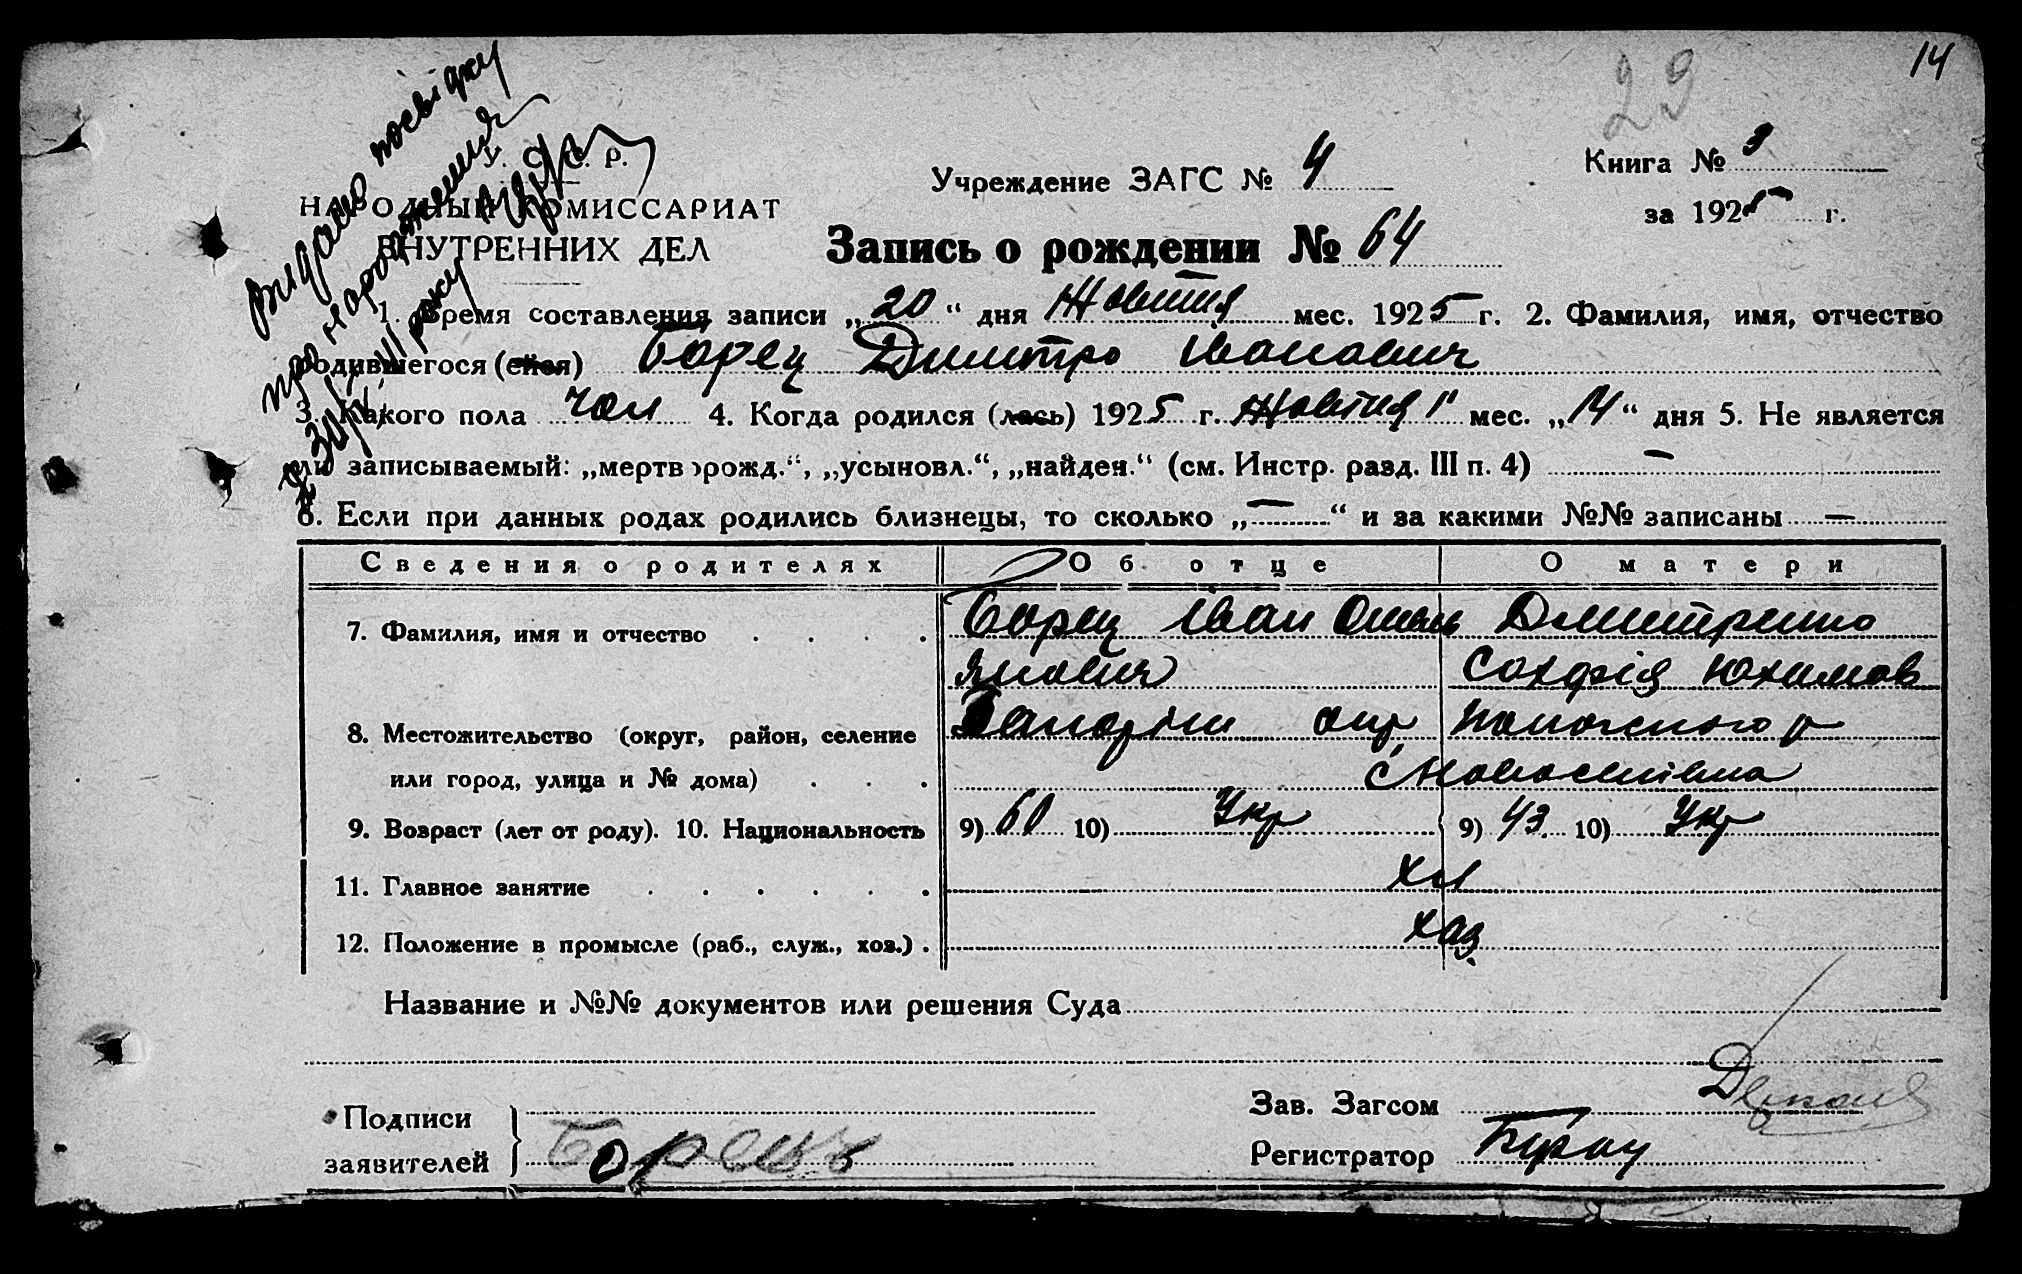 14
29
видано посвідку
про народження
У. С. С. Р.
НАРОДНЫЙ КОМИССАРИАТ
ВНУТРЕННИХ ДЕЛ
Учреждение ЗАГС № 4
Книга № 3
за 1925 г.
Запись о рождении № 64
1. Время составления записи „20“ дня Жовтня мес. 1925 г. 2. Фамилия, имя, отчество
родившегося (ейся) Борец Дмитро Іванович
3. Какого пола чол 4. Когда родился (лась) 1925 г. Жовтня мес. „14“ дня 5. Не является
ли записываемый: „мертворожд.“, „усыновл.“, „найден.“ (см. Инстр. разд. III п. 4) —
6. Если при данных родах родились близнецы, то сколько „—“ и за какими №№ записаны —
Сведения о родителях Об отце О матери
7. Фамилия, имя и отчество Борец Іван Омель Дмитренко
янович Сохфія Юхимов
8. Местожительство (округ, район, селение Запоріж окр
или город, улица и № дома)
9. Возраст (лет от роду). 10. Национальность 9) 60 10) Укр 9) 43 10) Укр
11. Главное занятие хл
12. Положение в промысле (раб., служ., хоз.) хаз.
Название и №№ документов или решения Суда
Подписи
заявителей Борець
Зав. Загсом
Регистратор